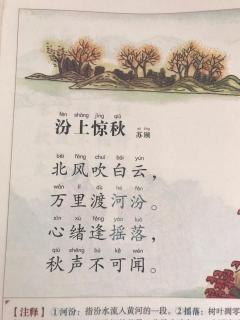 fén shàng jīng qiū
汾上惊秋
sū tǐng
苏颋
běi fēng chuī bái yún
北风吹白云，
wàn lǐ dù hé fén
万里渡河汾。
xīn xù féng yáo luò
心绪逢摇落，
qiū shēng bù kě wén
秋声不可闻。
【注释】①河汾：指汾水流入黄河的一段。②摇落：树叶凋零